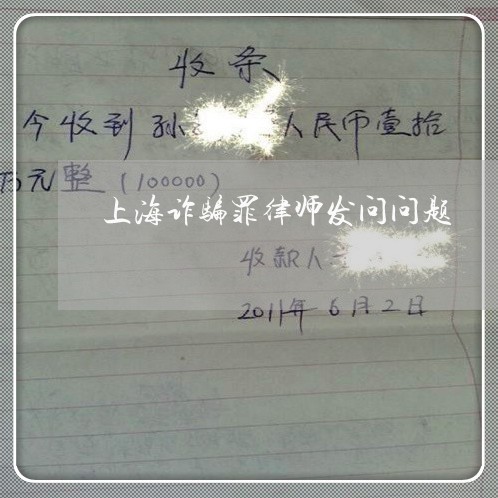 收条
今收到孙 人民币壹拾
万元整（100000）
上海诈骗罪律师发问问题
收款人
2011年6月2日